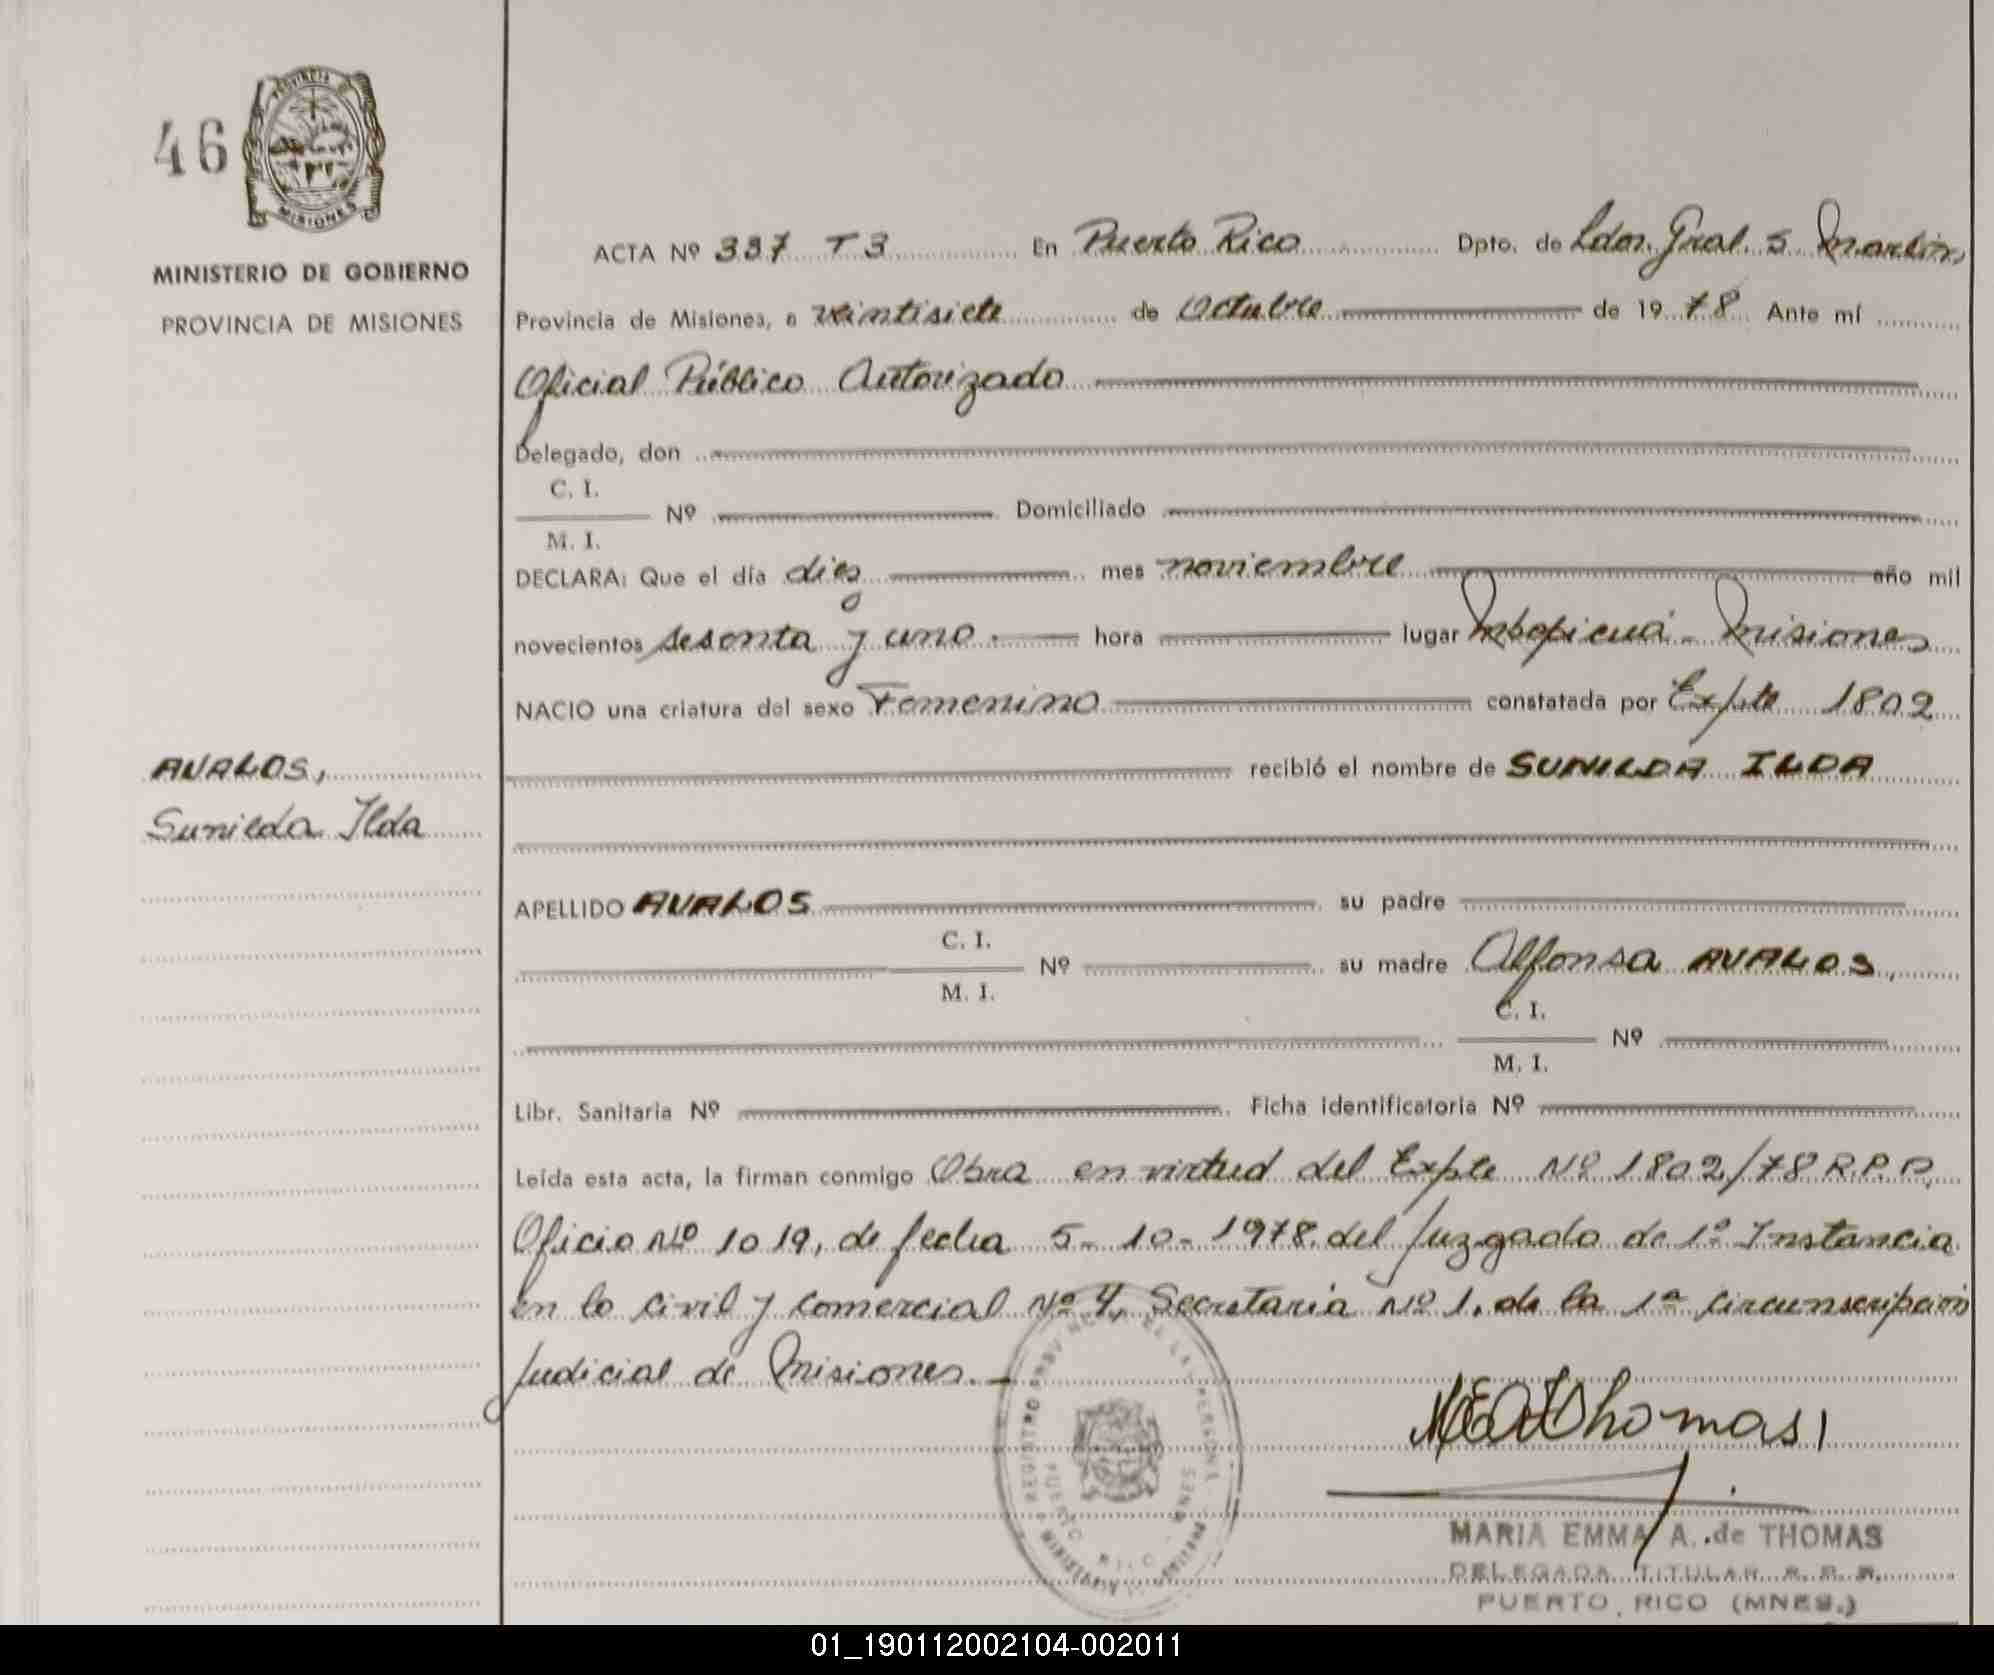 46
PROVINCIA D
MISIONES
MINISTERIO DE GOBIERNO
PROVINCIA DE MISIONES
ACTA Nº 337 T 3 En Puerto Rico Dpto. de Ldor. Gral. S. Martin,
Provincia de Misiones, a veintisiete de Octubre de 1978 Ante mí
Oficial Público Autorizado
Delegado, don
C. I.
Nº Domiciliado
M. I.
DECLARA: Que el día diez mes noviembre año mil
novecientos sesenta y uno. hora lugar Mbopicuá - Misiones
NACIO una criatura del sexo Femenino constatada por Expte 1802
AVALOS, recibió el nombre de SUNILDA ILDA
Sunilda Ilda
APELLIDO AVALOS su padre
C. I.
Nº su madre Alfonsa AVALOS,
M. I.
C. I.
Nº
M. I.
Libr. Sanitaria Nº Ficha identificatoria Nº
Leída esta acta, la firman conmigo Obra en virtud del Expte Nº 1802/78 R.P.P,
Oficio Nº 1019, de fecha 5-10-1978 del Juzgado de 1º Instancia
en lo civil y comercial Nº 4, Secretaria Nº 1. de la 1ª circunscripción
Judicial de Misiones.-
REGISTRO DE LAS PERSONAS
PUERTO RICO
MNES
MEAdThomas
MARIA EMMA A. de THOMAS
DELEGADA TITULAR R. P. P.
PUERTO RICO (MNES.)
01_190112002104-002011